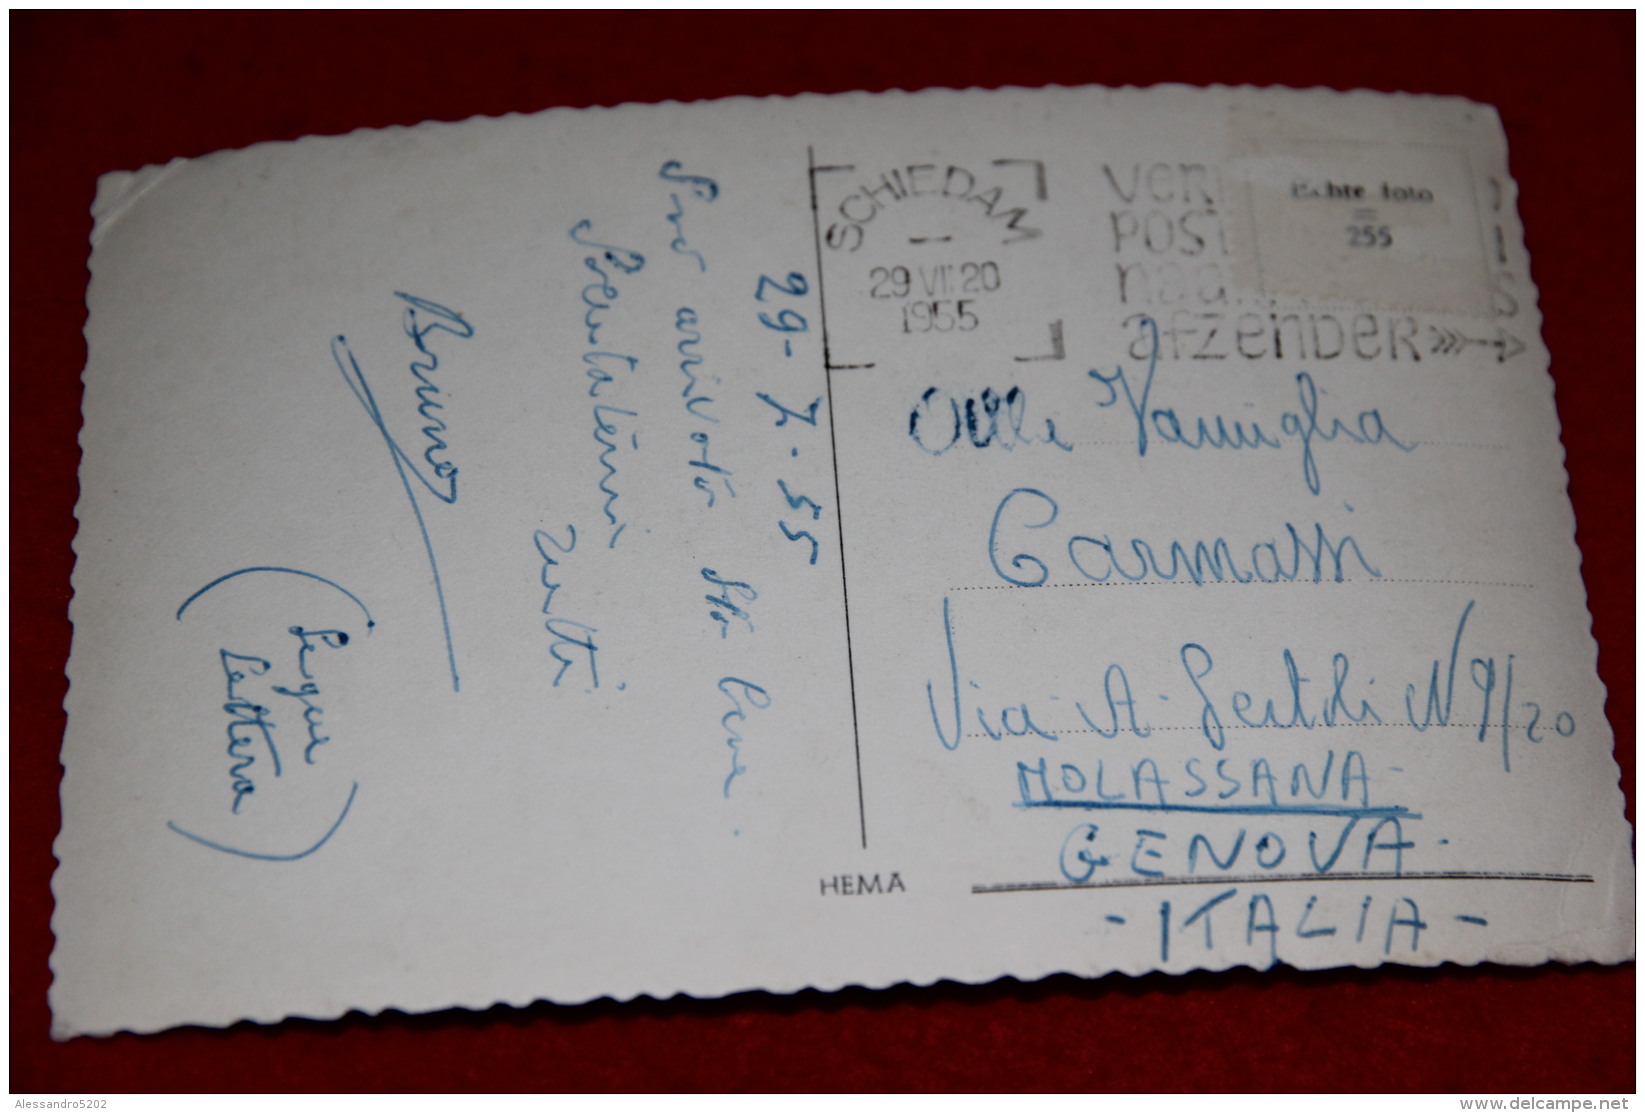 29-7-55
Sono arrivato Stò bene.
Salutatemi
tutti
Bruno
(Segue
Lettera)
SCHIEDAM
29 VII 20
1955
POST
afzender
Echte foto
255
Alla Famiglia
Carmassi
Via A. N 9/20
MOLASSANA-
GENOVA-
-ITALIA-
HEMA
Alessandro5202
delcampe.net